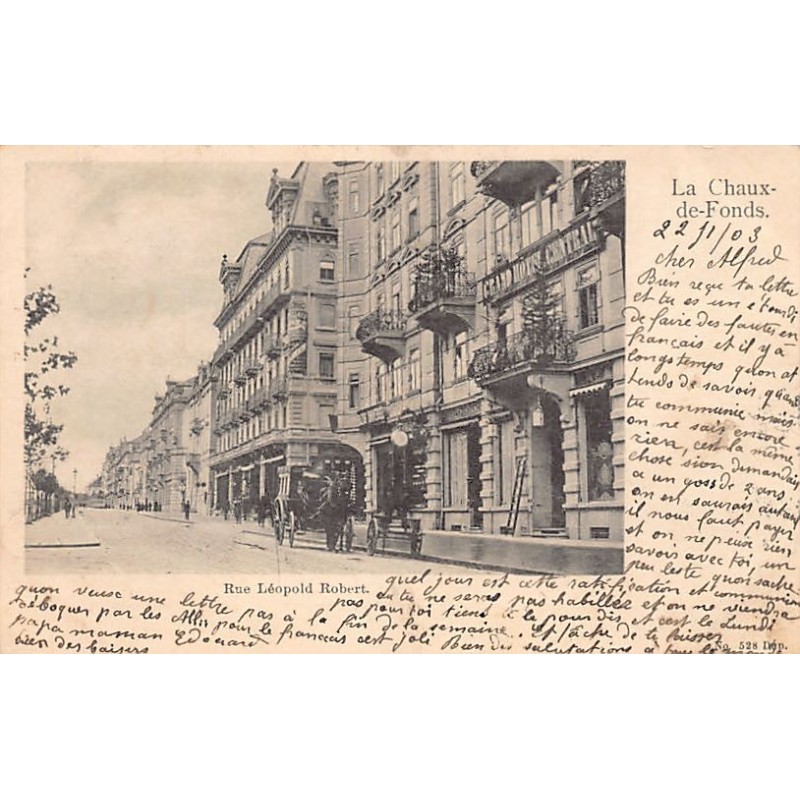 La Chaux-
de-Fonds.
22/1/03
cher Alfred
Bien reçu ta lettre
et tu es un étourdi
de faire des fautes en
français et il y a
longstemps qu'on at
tends de savoir quand
tu communie mais
on ne sais encore
rien, c'est la même
chose si on demandais
a un gosse de 2 ans
on en saurais autant
il nous faut payer
et on ne peuse rien
savoir avec toi, un
peu leste qu'on sache
GRAND HOTEL CENTRAL
Rue Léopold Robert.
quel jour est cette ratification et communion
ou tu ne seras pas habillez et on ne viendra
pas pour toi tiens à le pour dis et c'est le Lundi
quon veuse une lettre pas à la fin de la semaine. et tâche de te
par les pour le français c'est joli Bien des salutations à tous
papa maman Edouard
bien des baisers
No. 528 Dép.